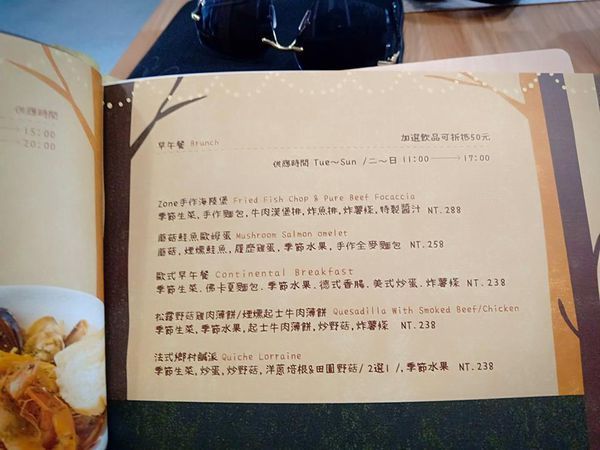 供應時間
15:00
20:00
早午餐 Brunch
加選飲品可折抵50元
供應時間 Tue~Sun /二~日 11:00→17:00
Zone手作海陸堡 Fried Fish Chop & Pure Beef Focaccia
季節生菜,手作麵包,牛肉漢堡排,炸魚排,炸薯條,特製醬汁 NT.288
蘑菇鮭魚歐姆蛋 Mushroom Salmon omelet
蘑菇,煙燻鮭魚,履歷雞蛋,季節水果,手作全麥麵包 NT.258
歐式早午餐 Continental Breakfast
季節生菜.佛卡夏麵包.季節水果.德式香腸.美式炒蛋.炸薯條 NT.238
松露野菇雞肉薄餅/煙燻起士牛肉薄餅 Quesadilla With Smoked Beef/Chicken
季節生菜,季節水果,起士牛肉薄餅,炒野菇,炸薯條 NT.238
法式鄉村鹹派 Quiche Lorraine
季節生菜,炒蛋,炒野菇,洋蔥培根&田園野菇/2選1/,季節水果 NT.238